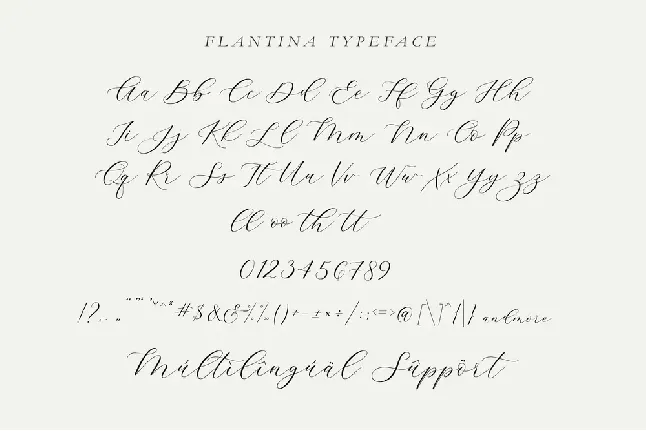 FLANTINA TYPEFACE
Aa Bb Cc Dd Ee Ff Gg Hh
Ii Jj Kk Ll Mm Nn Oo Pp
Qq Rr Ss Tt Uu Vv Ww Xx Yy Zz
ll oo th tt
0123456789
!?.. #$&%()+-±×÷/:;<=>@[\]^{|} andmore
Múltilîngúäl Sûppôrt